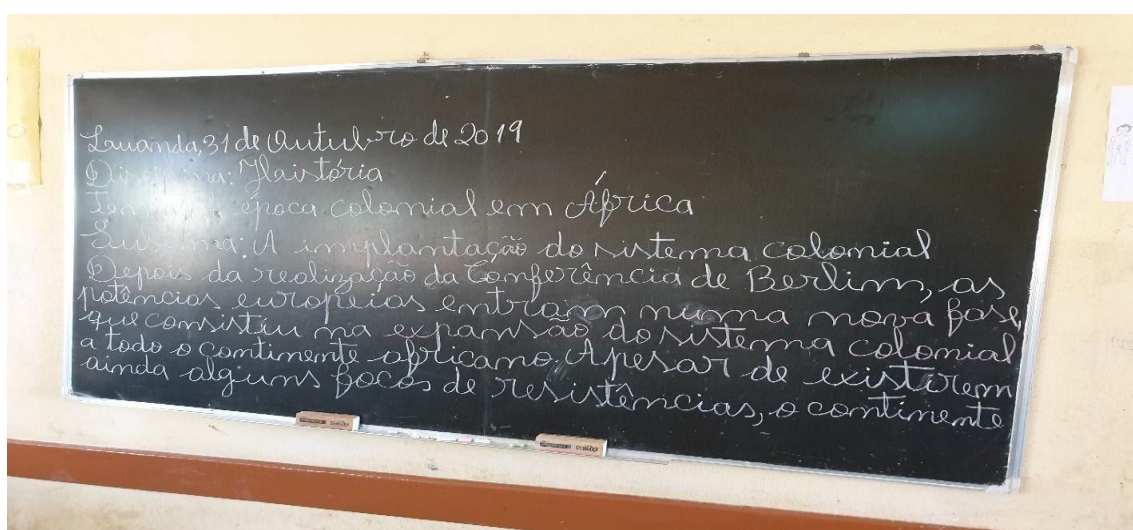 Luanda,31 de Outubro de 2019
Disciplina: Haistória
Tema: época colonial em África
Subtema: A implantação do sistema colonial
Depois da realização da Conferência de Berlim, as
potências europeias entram numa nova fase,
que consistiu na expansão do sistema colonial
a todo o continente africano. Apesar de existirem
ainda alguns focos de resistências, o continente